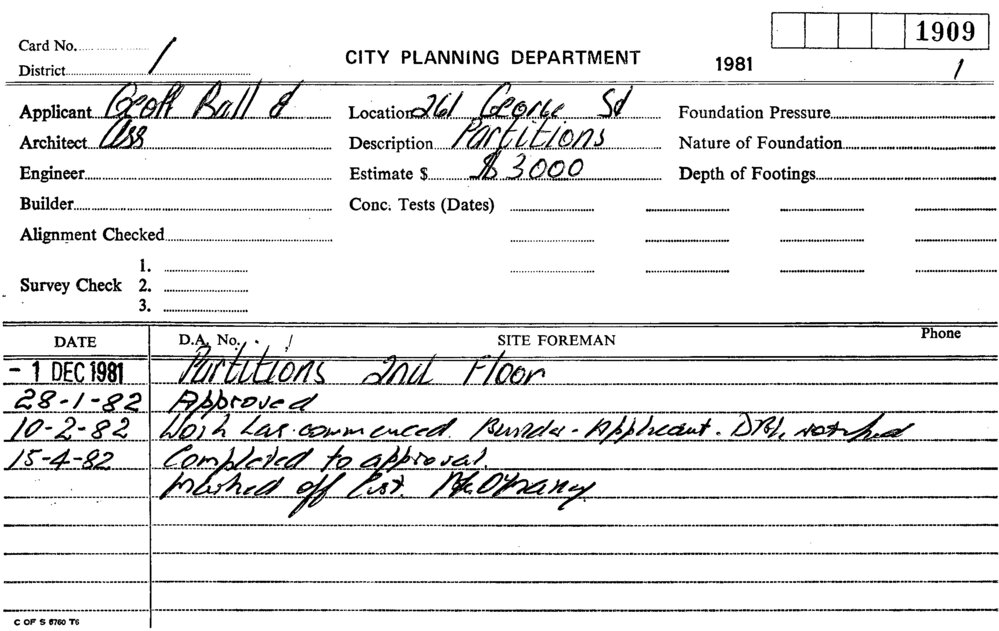 1909
Card No. 1
CITY PLANNING DEPARTMENT 1981 1
District
Applicant Geoff Ball & Location 261 George St Foundation Pressure
Architect Ass Description Partitions Nature of Foundation
Engineer Estimate $ $ 3000 Depth of Footings
Builder Conc. Tests (Dates)
Alignment Checked
1.
Survey Check 2.
3.
DATE D.A. No. SITE FOREMAN Phone
- 1 DEC 1981 Partitions 2nd Floor
28-1-82 Approved
10-2-82 Work has commenced. Builder - Applicant. notified
15-4-82 Completed to approval.
Marked off list.
C OF S 6760 T6